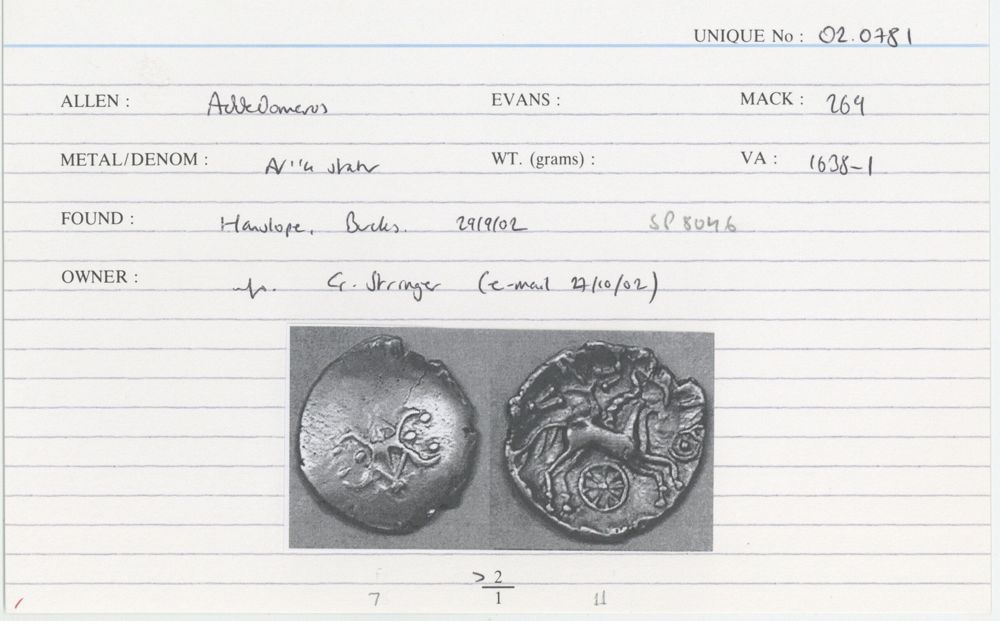 UNIQUE No : 02.0781
ALLEN : Addedomaros EVANS : MACK : 269
METAL/DENOM : stater WT. (grams) : VA : 1638-1
FOUND : Hanslope, Bucks. 29/9/02 SP 8046
OWNER : info. G. Stringer (e-mail 27/10/02)
> 2
7 1 11